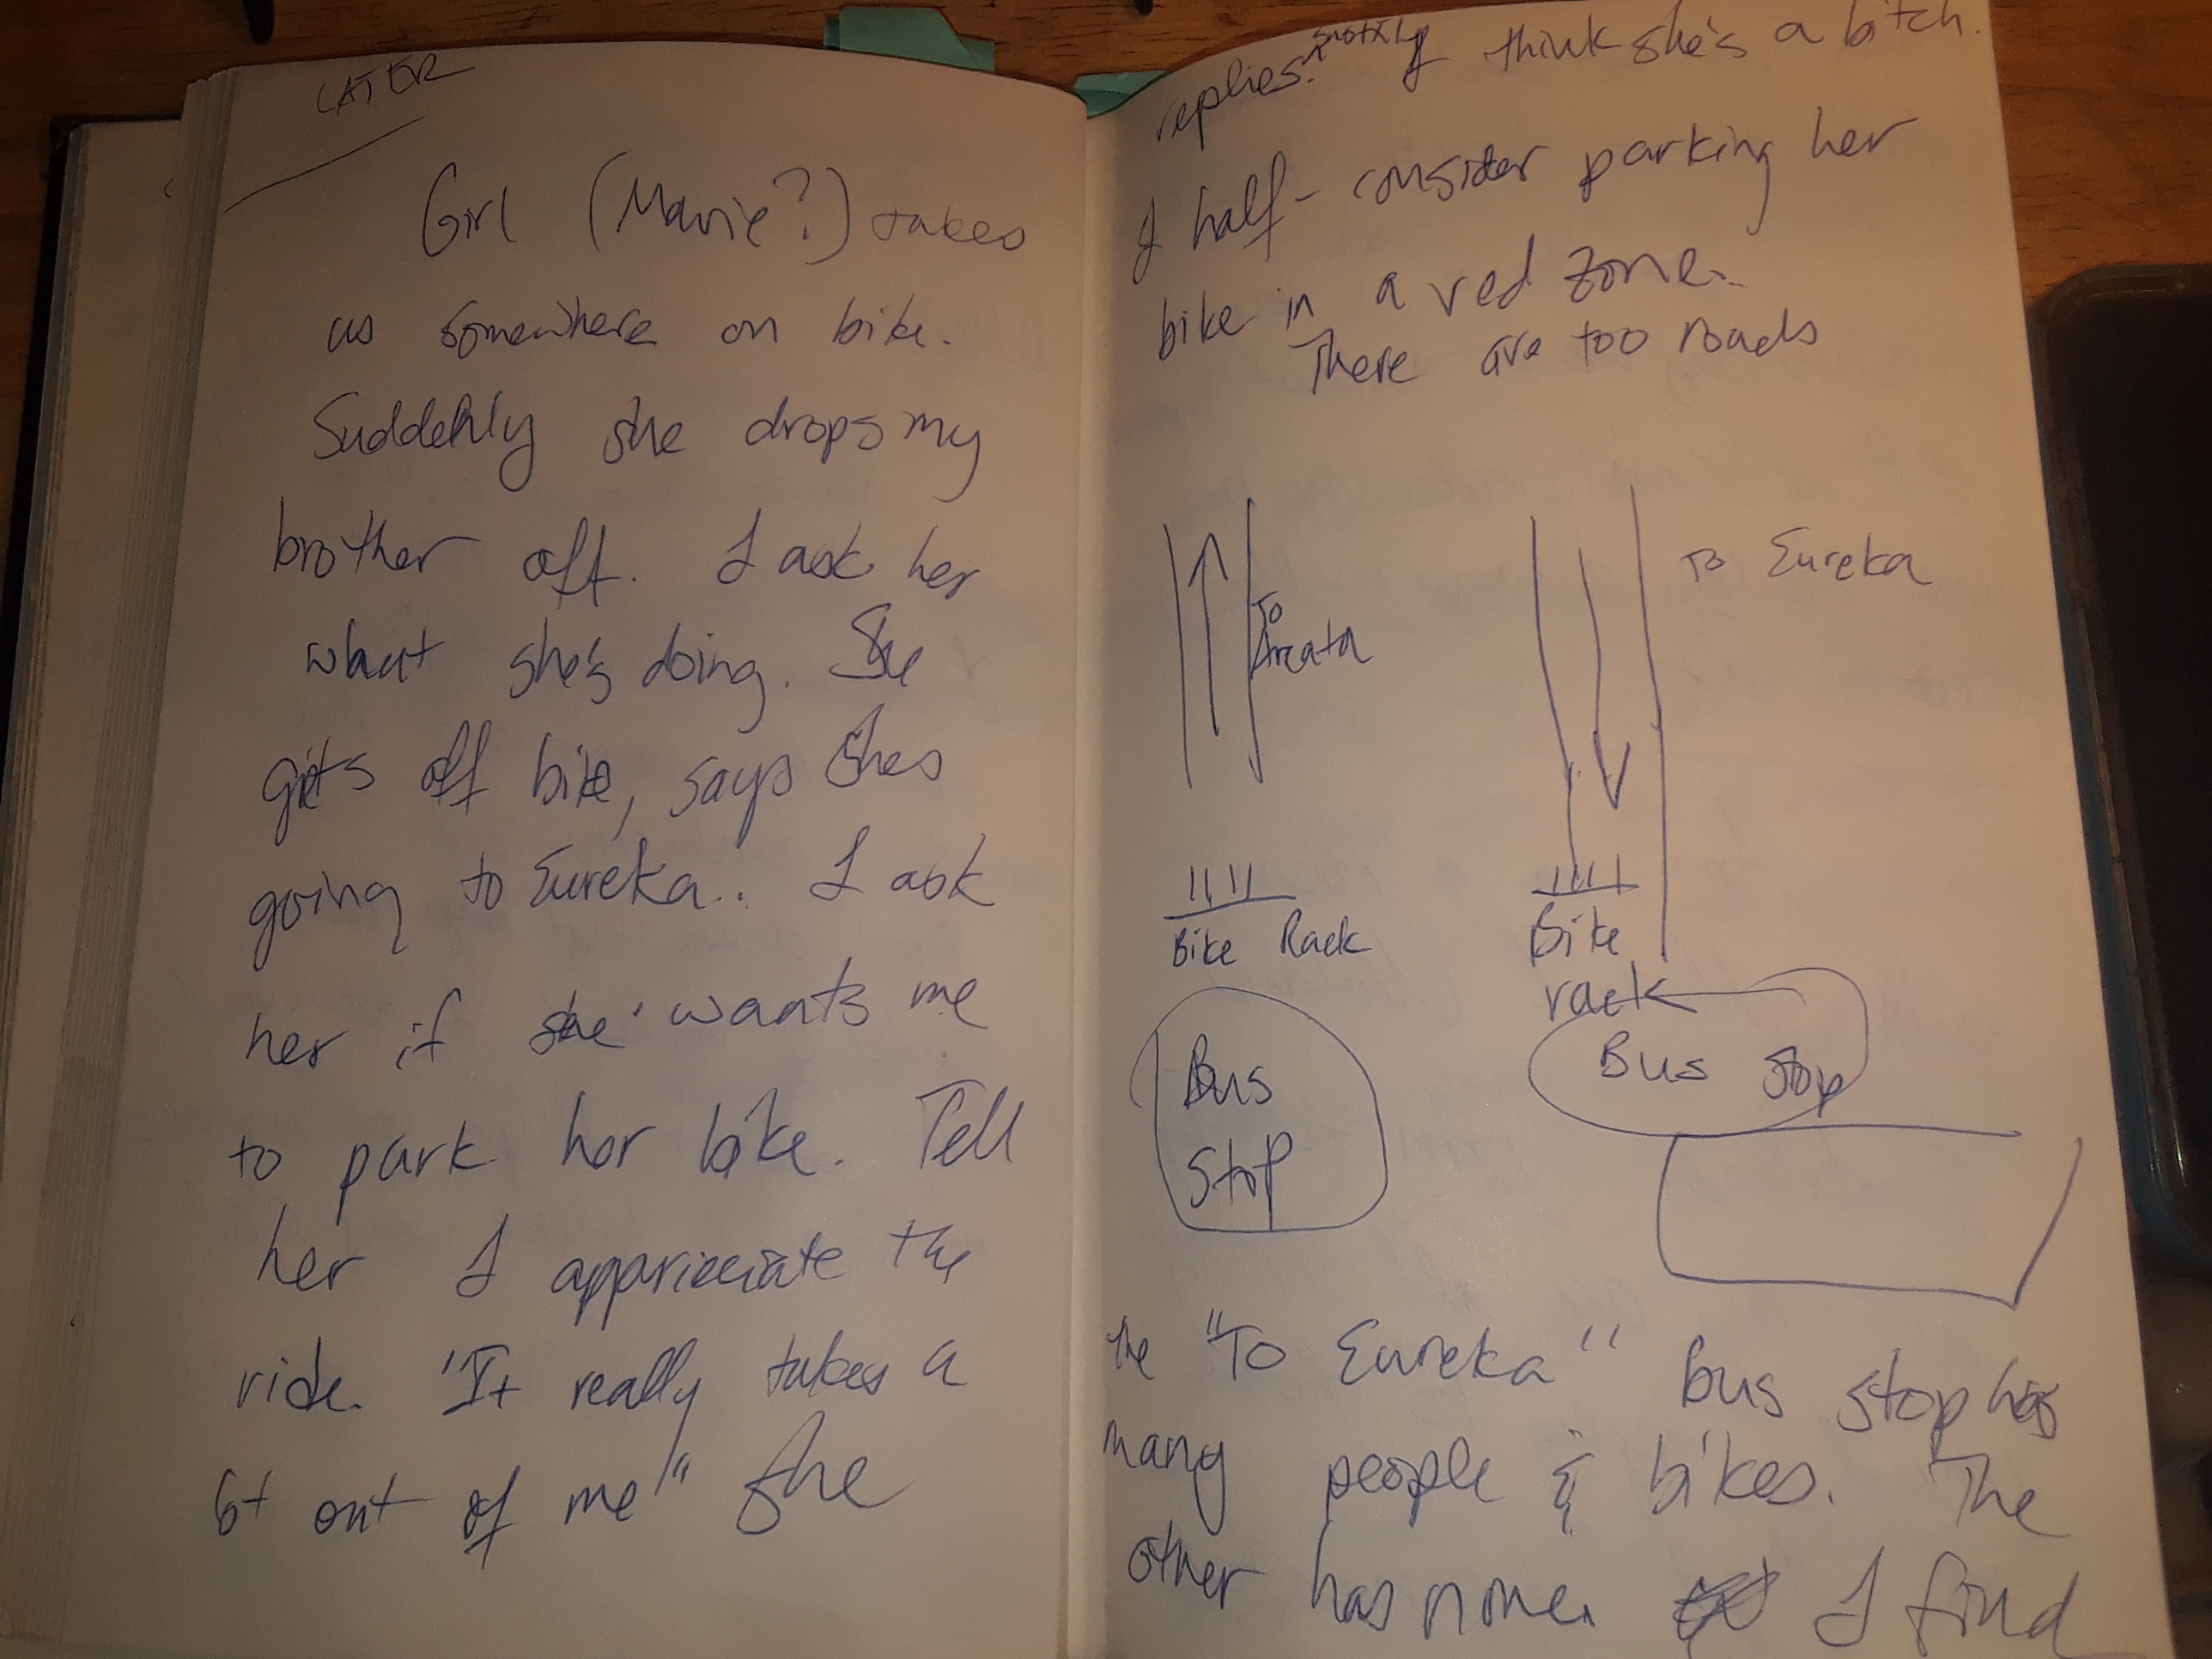 LATER
Girl (Marie?) takes
us somewhere on bike.
Suddenly she drops my
brother off. I ask her
what she's doing. She
gets off bike, says shes
going to Eureka.. I ask
her if she wants me
to park her bike. Tell
her I apparieciate the
ride. "It really takes a
lot out of me" she
replies. snottily I think she's a bitch.
I half-consider parking her
bike in a red zone.
There are too roads
To Arcata
To Eureka
Bike Rack
Bike
rack
Bus
Stop
Bus Stop
the "To Eureka" bus stop has
many people & bikes. The
other has none. I find